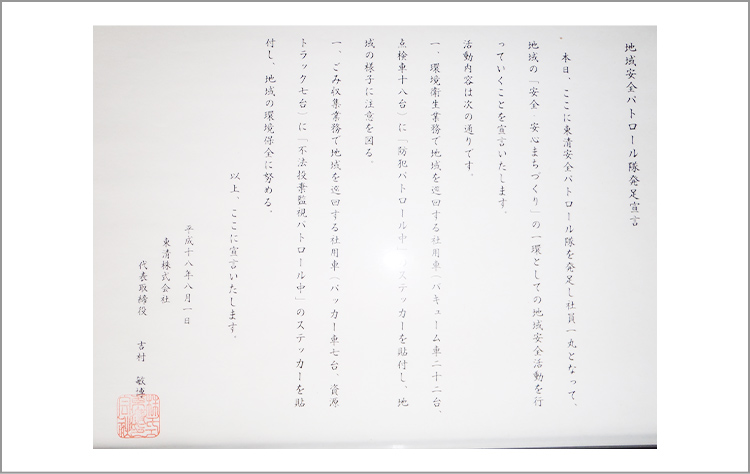 地域安全パトロール隊発足宣言
本日、ここに東清安全パトロール隊を発足し社員一丸となって、
地域の「安全　安心まちづくり」の一環としての地域安全活動を行
っていくことを宣言いたします。
活動内容は次の通りです。
一、環境衛生業務で地域を巡回する社用車（バキューム車二十二台、
点検車十八台）に「防犯パトロール中」ステッカーを貼付し、地
域の様子に注意を図る。
一、ごみ収集業務で地域を巡回する社用車（パッカー車七台、資源
トラック七台）に「不法投棄監視パトロール中」のステッカーを貼
付し、地域の環境保全に努める。
以上、ここに宣言いたします。
平成十八年八月一日
東清株式会社
代表取締役　吉村　敏